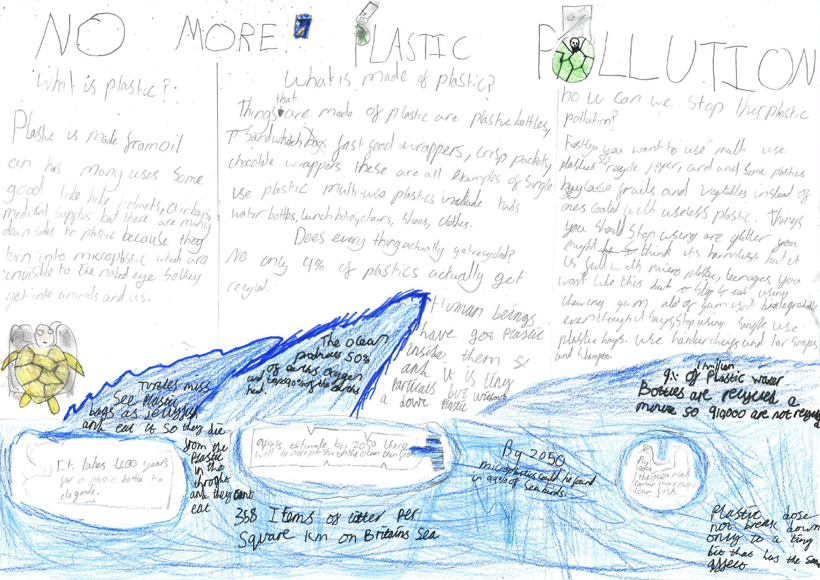 NO MORE PLASTIC POLLUTION
What is plastic?
Plastic is made from oil
an has many uses some
good like bike helmets, airbags,
medical supplies but there are many
down sides to plastic because they
turn into microplastic which are
invisible to the naked eye so they
get into animals and us.
What is made of plastic?
Things that are made of plastic are plastic bottles,
sandwich bags fast good wrappers, crisp packets,
chocolate wrappers these are all examples of single
use plastic multi-use plastics include tubs
water bottles, lunch boxes, chairs, shoes, clothes.
Does every thing actually get recycled?
No only 9% of plastics actually get
recycled.
Human beings
have got Plastic
inside them
and it is tiny
particals but
a down Plastic
how can we stop this plastic
pollution?
Firstly you want to use multi use
plastics recycle paper, card and some plastics
buy loose fruits and vegtables instead of
ones coated with useless plastic. Things
you should stop using are glitter you
might think its harmless but it
is full with micro plastics, teenagers you
wont like this but stop using
chewing gum alot of gum isn't biodegradable
even though it says stop using single use
plastic bags. use hankercheifs and bar soaps
and shampoo.
The ocean
produces 50%
of earths oxygen
and
heat.
Turtles miss
see plastic
bags as jellyfish
and eat it so they die
from the
Plastic
in the
throght
and they cant
eat
1 million
9% of Plastic water
Bottles are recycled a
minute so 910000 are not recycled
It takes 400 years
for a plastic bottle to
degrade.
estimate by 2050 there
will be more plastic in the ocean than fish
By 2050
microplastics could be found
in 99% of sea birds.
By
2050
the ocean could
contain more plastic
than fish
358 Items of litter per
Square km on Britains Sea
Plastic dose
not break down
only to a tiny
bit that has the same
affect